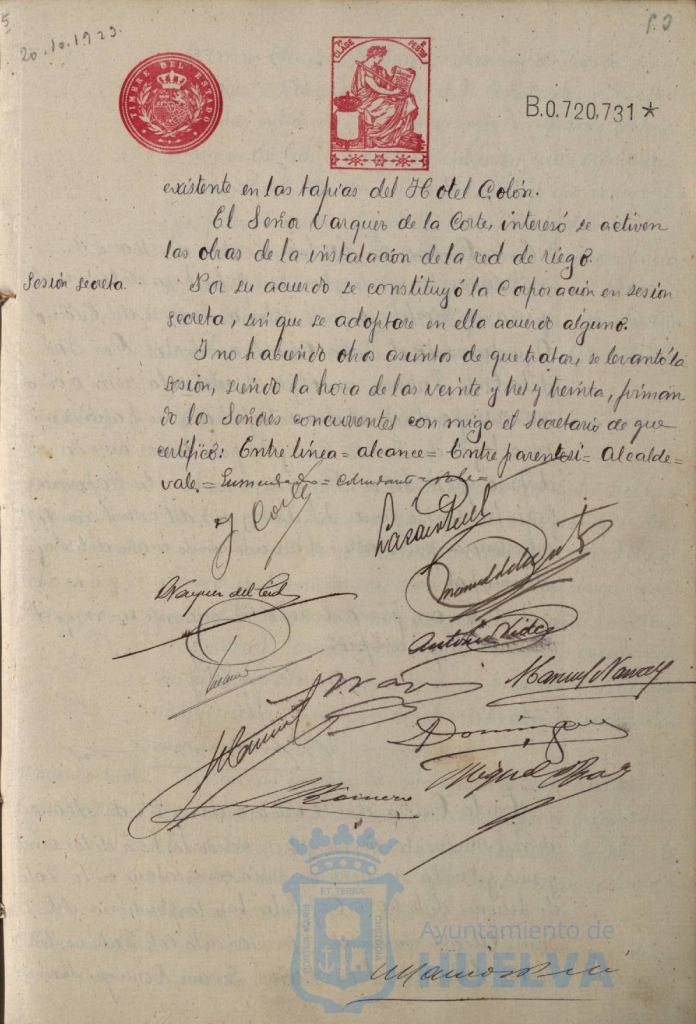 5
20.10.1923.
TIMBRE DEL ESTADO
7ª CLASE
PESETAS
B.0.720,731*
existente en las tapias del Hotel Colón.
El Señor Vazquez de la Corte, interesó se activen
las obras de la instalación de la red de riego.
Sesión secreta
Por su acuerdo se constituyó la Corporación en sesión
secreta, sin que se adoptare en ella acuerdo alguno.
I no habiendo otros asuntos de que tratar, se levantó la
sesión, siendo la hora de las veinte y tres y treinta, firman
do los Señores concurrentes conmigo el Secretario de que
certifico: Entre línea = alcance = Entre parentesi = Alcalde =
vale. = Enmendados =
J Corte
Manuel de la Corte
Antonio Vides
Manuel Navarro
Dominguez
Romero
Miguel Diaz
ET TERRÆ
PORTUS MARIS
CUSTODIA
Ayuntamiento de
HUELVA